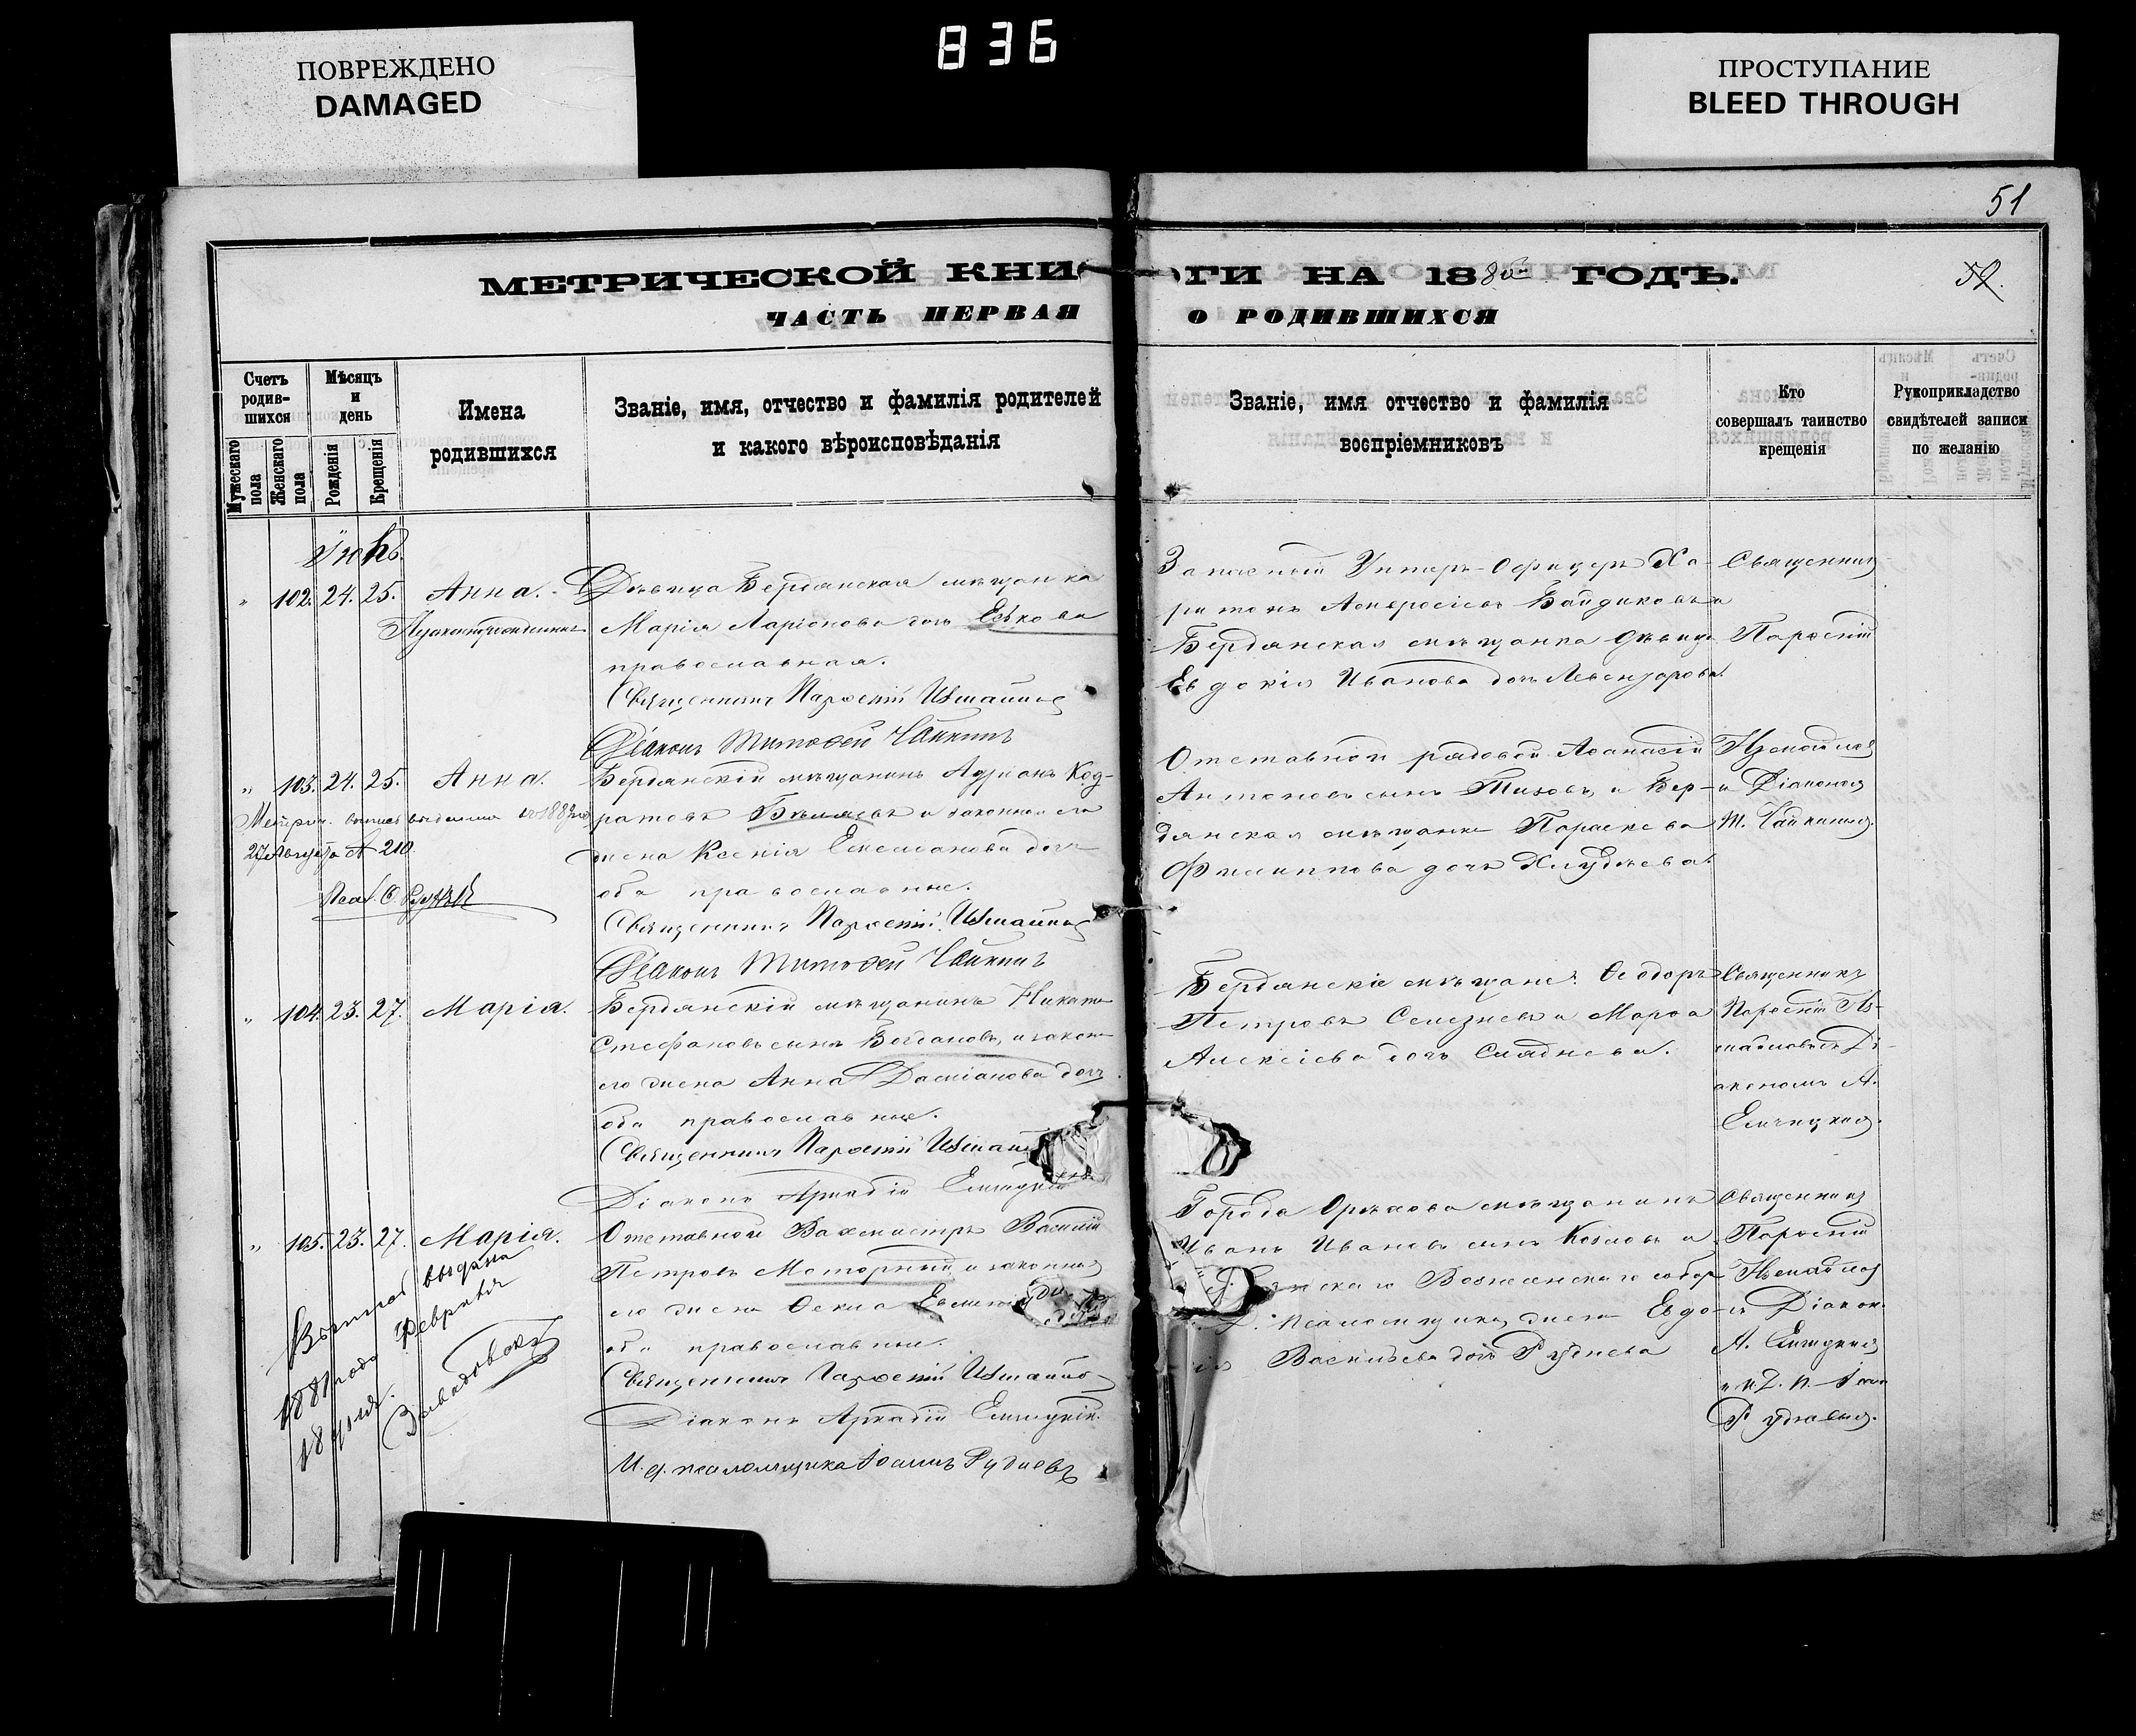 836
ПОВРЕЖДЕНО
DAMAGED
ПРОСТУПАНИЕ
BLEED THROUGH
51
МЕТРИЧЕСКОЙ КНИ
ГИ НА 1880 ГОДЪ.
52.
ЧАСТЬ ПЕРВАЯ
О РОДИВШИХСЯ
Счетъ родив-шихся
Мужескаго пола
Женскаго пола
Мѣсяцъ и день
Рожденія
Крещенія
Имена родившихся
Званіе, имя, отчество и фамилія родителей
и какого вѣроисповѣданія
Званіе, имя отчество и фамилія
воспріемниковъ
Кто
совершалъ таинство
крещенія
Рукоприкладство
свидѣтелей записи
по желанію
Іюнь.
„ 102. 24. 25. Анна.
Незаконнорожденная
Дѣвица Бердянская мѣщанка
Марія Ларіонова дочь Еськова
православная.
Священникъ Парѳеній Измаиловъ
Діаконъ Тимофей Чайкинъ
Запасный Унтеръ-Офицеръ Ха-
ритонъ Амвросіевъ Байдиковъ и
Бердянская мѣщанка дѣвица
Евдокія Иванова дочь
Священникъ
Парѳеній
Измаиловъ
и Діаконъ
Т. Чайкинъ.
„ 103. 24. 25. Анна.
Метрич. выпись выдана 1882 г.
27 Августа № 210
Бердянскій мѣщанинъ Адріанъ Код-
ратовъ Бѣляевъ и законная его
жена Ксенія Емельянова дочь
оба православные.
Священникъ Парѳеній Измаиловъ
Діаконъ Тимофей Чайкинъ
Отставной рядовой Аѳанасій
Антоновъ сынъ Титовъ, и Бер-
дянская мѣщанка Параскева
Филиппова дочь
„ 104. 23. 27. Марія.
Бердянскій мѣщанинъ Никита
Стефановъ сынъ Богдановъ, и закон
его жена Анна Даміанова дочь
оба православные.
Священникъ Парѳеній Измаил
Діаконъ Аркадій
Бердянскіе мѣщане: Ѳеодоръ
Петровъ Селезневъ и Марѳа
Алексіева дочь
Священникъ
Парѳеній Из-
маиловъ съ Ді-
акономъ А.
„ 105. 23. 27. Марія.
Выпись выдана
1881 года Февраля
18 дня.
Завадовскій
Отставной Вахмистръ Василій
Петровъ Моторный и законная
его жена Ѳекла
оба православные.
Священникъ Парѳеній Измаило
Діаконъ Аркадій
И. д. псаломщика Іоаннъ Рудневъ
Города Орѣхова мѣщанинъ
Иванъ Ивановъ сынъ Козловъ и
Вознесенскаго собор
псаломщика жена Евдо-
Васильева дочь Руднева
Священникъ
Парѳеній
Измаиловъ
съ Діакон.
А.
и И. Д. п. Іоан
Рудневымъ.